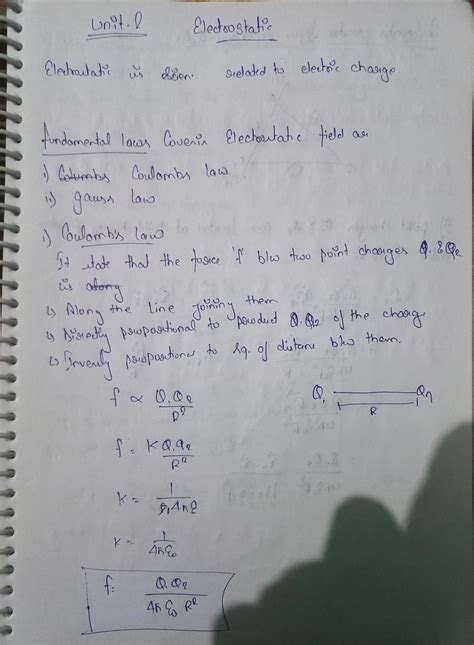 Unit.1 Electrostatic
Electrostatic is related to electric charge
fundamental laws Electrostatic field are
i) Coulombs law
ii) gauss law
i) Coulombs law
It state that the force 'f' b/w two point charges Q1 & Q2
is
↳ Along the line joining them
↳ Directly propotional to product Q1Q2 of the charge
↳ Inversly propotional to sq. of distance b/w them.
f ∝ Q1Q2/R²
Q1 Q2
R
f = K Q1Q2/R²
K =
K = 1/4πε0
f = Q1Q2/4πε0 R²